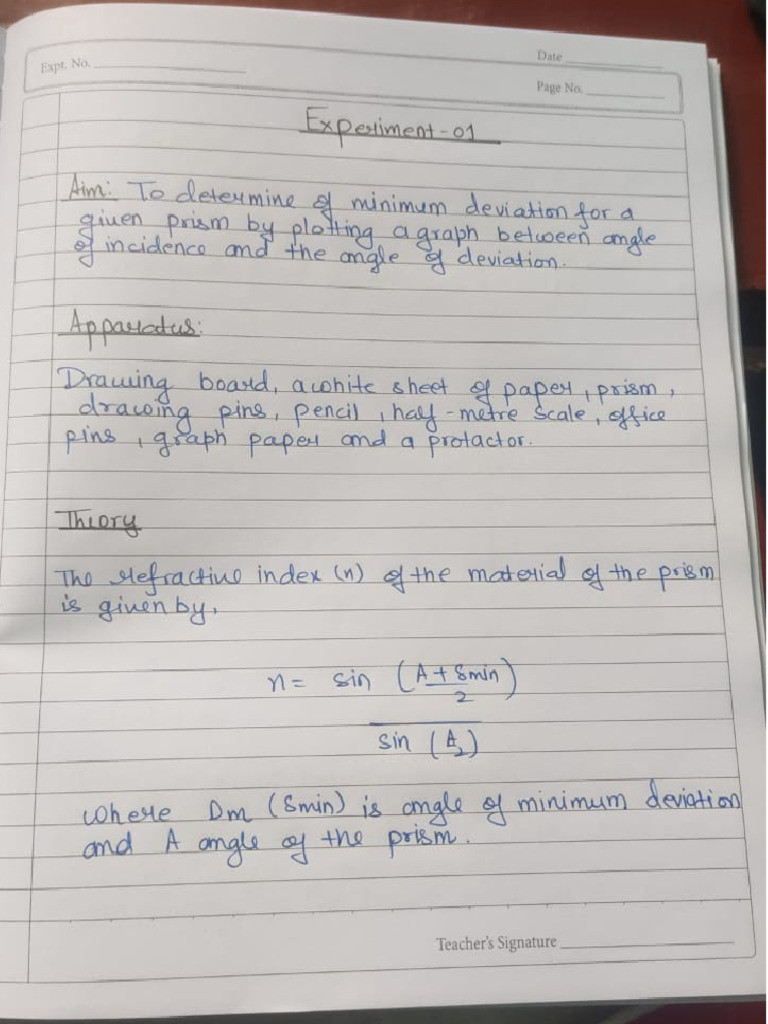 Expt. No.
Date
Page No.
Experiment-01
Aim: To determine of minimum deviation for a
given prism by plotting a graph between angle
of incidence and the angle of deviation.
Apparatus:
Drawing board, a white sheet of paper, prism,
drawing pins, pencil, half-metre scale, office
pins, graph paper and a protactor.
Theory
The refractive index (n) of the material of the prism
is given by,
n = sin (A + δmin / 2)
sin (A/2)
where Dm (δmin) is angle of minimum deviation
and A angle of the prism.
Teacher's Signature